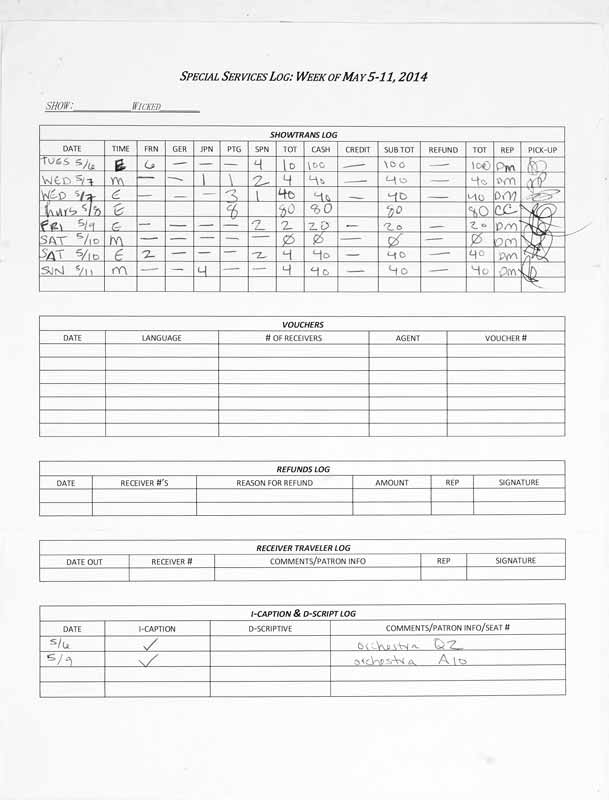 SPECIAL SERVICES LOG: WEEK OF MAY 5-11, 2014
SHOW:__________WICKED_______
SHOWTRANS LOG
DATE TIME FRN GER JPN PTG SPN TOT CASH CREDIT SUB TOT REFUND TOT REP PICK-UP
TUES 5/6 E 6 — — — 4 10 100 — 100 — 100 DM
WED 5/7 M — — 1 1 2 4 40 — 40 — 40 DM
WED 5/7 E — — — 3 1 40 40 — 40 — 40 DM
thurs 5/8 E 8 80 80 80 80 CC
FRI 5/9 E — — — — 2 2 20 — 20 — 20 DM
SAT 5/10 M — — — — — Ø Ø — Ø — Ø DM
SAT 5/10 E 2 — — — 2 4 40 — 40 — 40 DM
SUN 5/11 M — — 4 — — 4 40 — 40 — 40 DM
VOUCHERS
DATE LANGUAGE # OF RECEIVERS AGENT VOUCHER #
REFUNDS LOG
DATE RECEIVER #'S REASON FOR REFUND AMOUNT REP SIGNATURE
RECEIVER TRAVELER LOG
DATE OUT RECEIVER # COMMENTS/PATRON INFO REP SIGNATURE
I-CAPTION & D-SCRIPT LOG
DATE I-CAPTION D-SCRIPTIVE COMMENTS/PATRON INFO/SEAT #
5/6 ✓ orchestra Q2
5/9 ✓ orchestra A10